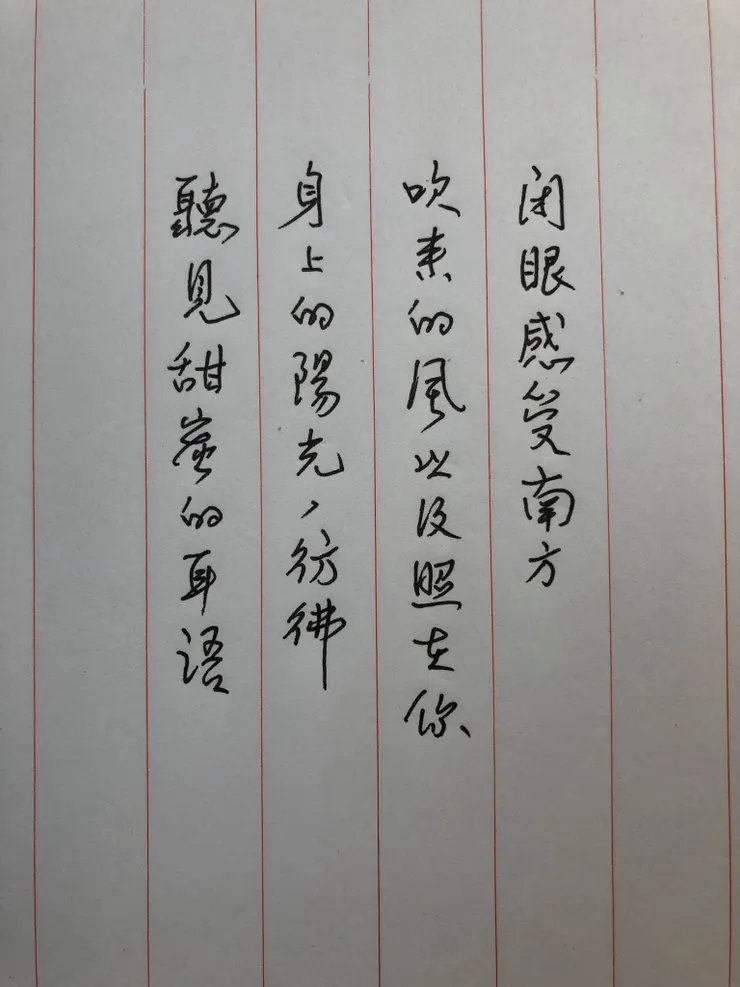 闭眼感受南方
吹来的风以及照在你
身上的陽光,彷彿
聽見甜蜜的耳语